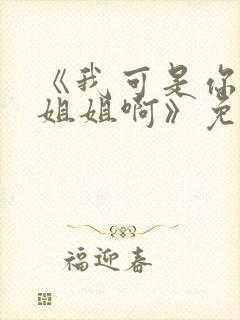 《我可是你
姐姐啊》免
福迎春